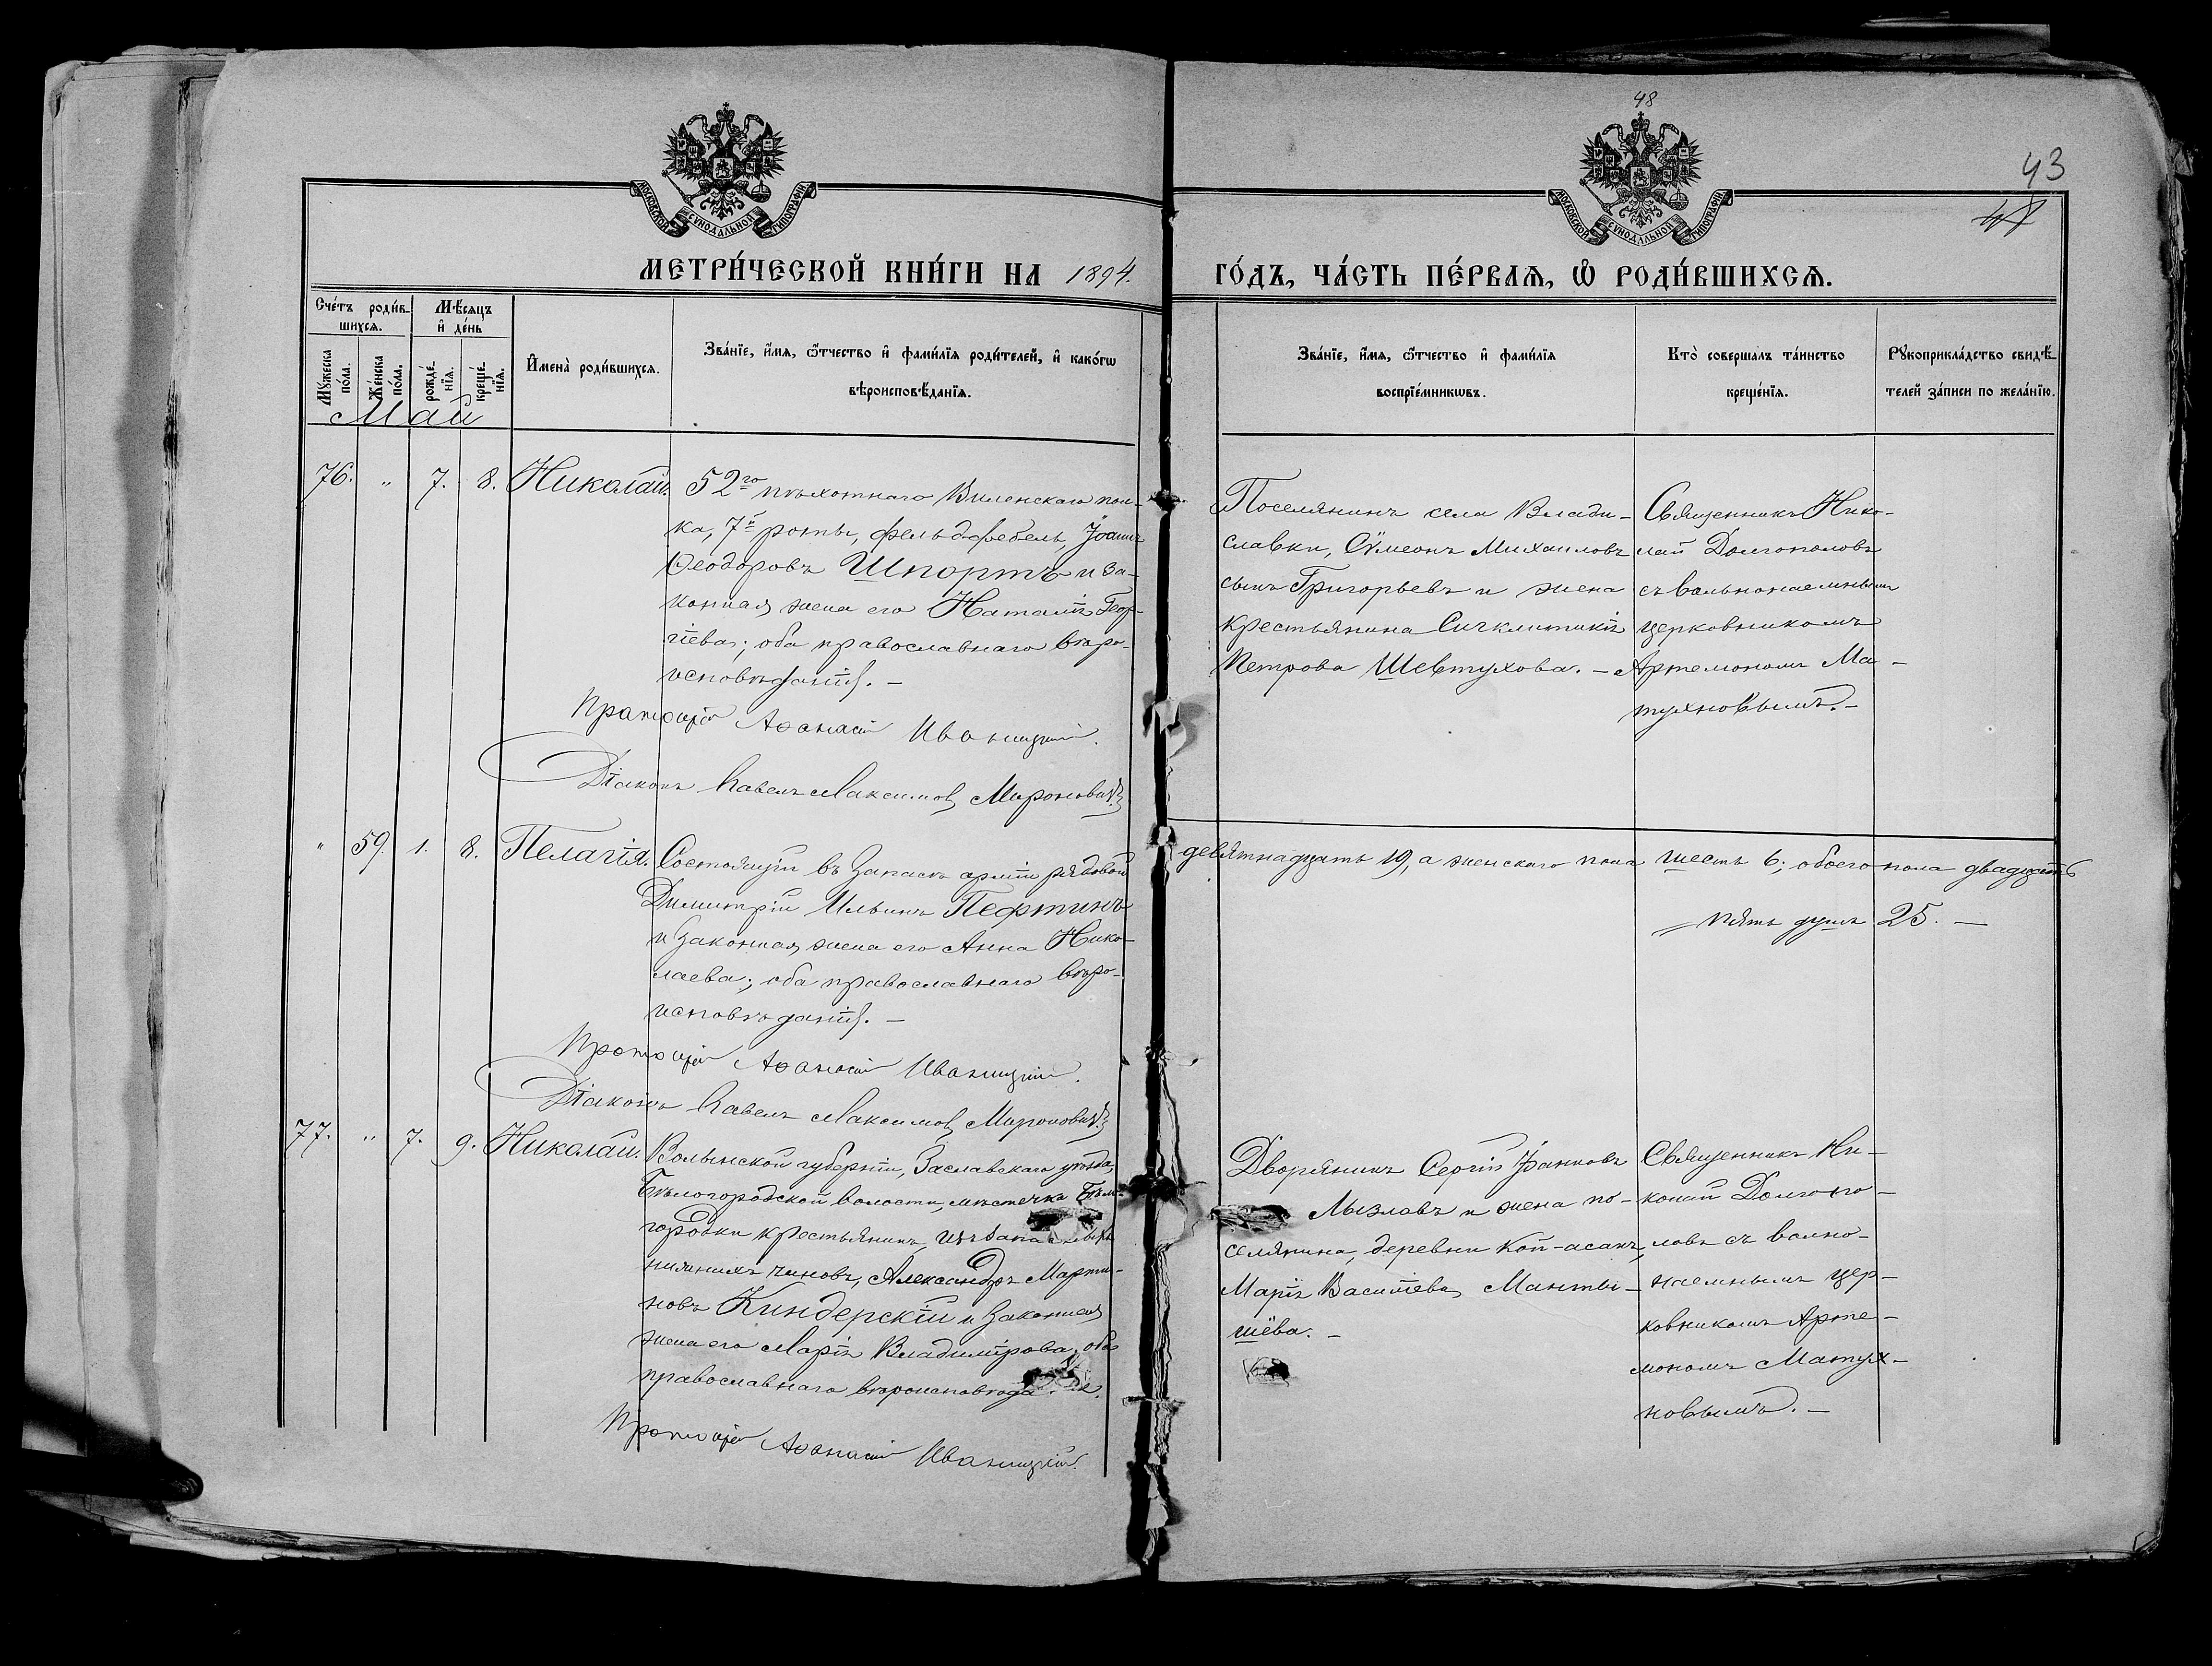 48
43
МОСКОВСКОЙ СѴНОДАЛЬНОЙ ТИПОГРАФІИ
МОСКОВСКОЙ СѴНОДАЛЬНОЙ ТИПОГРАФІИ
МЕТРИ́ЧЕСКОЙ КНИ́ГИ НА 1894.
ГО́ДЪ, ЧА́СТЬ ПЕ́РВАѦ, Ѽ РОДИ́ВШИХСѦ.
Сче́тъ роди́вшихсѧ.
Мꙋ́жеска по́ла.
Же́нска по́ла.
Мѣ́сѧцъ и҆ де́нь
рожде́нїѧ.
креще́нїѧ.
И҆мена̀ роди́вшихсѧ.
Зва́нїе, и҆́мѧ, ѻ҆́тчество и҆ фами́лїѧ роди́телей, и҆ како́гѡ
вѣроисповѣ́данїѧ.
Зва́нїе, и҆́мѧ, ѻ҆́тчество и҆ фами́лїѧ
воспрїе́мникѡвъ.
Кто̀ соверша́лъ та́инство
креще́нїѧ.
Рꙋкоприкла́дство свидѣ́-
телей за́писи по жела́нїю.
Май
76. „ 7. 8. Николай.
52го пѣхотнаго Виленскаго пол-
ка, 7й роты, фельдфебель, Іоаннъ
Ѳеодоровъ Шпортъ и за-
конная жена его Наталія Геор-
гіева; оба православнаго вѣро-
исповѣданія. –
Протоіерей Аѳанасій Иваницкій.
Діаконъ Павелъ Максимовъ Мироновичъ
Поселянинъ села Влади-
славки, Сѵмеонъ Михаиловъ
сынъ Григорьевъ и жена
крестьянина Сигклитикія
Петрова Шевтухова. –
Священникъ Нико-
лай Долгополовъ
съ вольнонаемнымъ
церковникомъ
Артемономъ Ма-
тухновымъ. –
„ 59. 1. 8. Пелагія.
Состоящій въ запасѣ арміи рядовой
Димитрій Ильинъ Пефтинъ
и законная жена его Анна Нико-
лаева; оба православнаго вѣро-
исповѣданія. –
Протоіерей Аѳанасій Иваницкій.
Діаконъ Павелъ Максимовъ Мироновичъ
девятнадцать 19, а женскаго пола шесть 6; обоего пола двадцать
пять душъ 25. –
77. „ 7. 9. Николай.
Волынской губерніи, Заславскаго уѣзда,
Бѣлогородской волости, мѣстечка Бѣло-
городки крестьянинъ, изъ запасныхъ
нижнихъ чиновъ, Александръ Марти-
новъ Киндерскій и законная
жена его Марія Владимірова; оба
православнаго
Протоіерей Аѳанасій Иваницкій.
Дворянинъ Сергій
Лызловъ и жена по-
селянина, деревни Коп-асанъ,
Марія Василіева Манты-
шёва. –
Священникъ Ни-
колай Долгопо-
ловъ съ вольно-
наемнымъ цер-
ковникомъ Арте-
мономъ Матух-
новымъ. –